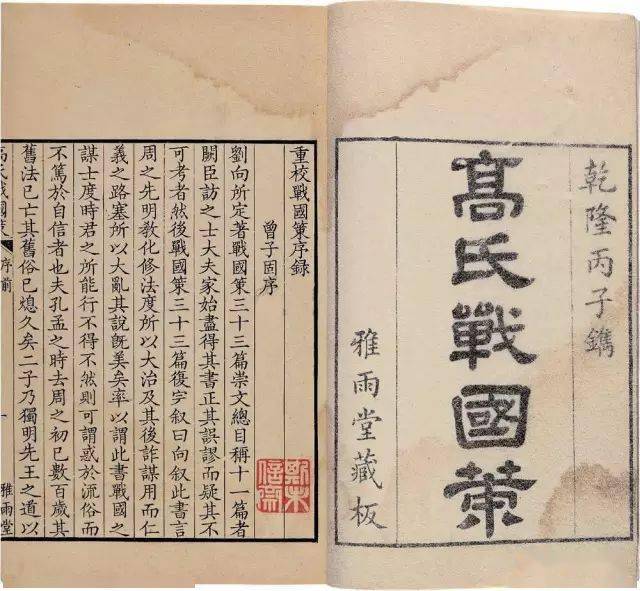 乾隆丙子鐫
髙氏戰國策
雅雨堂藏板
重校戰國策序録
曾子固序
劉向所定著戰國策三十三篇崇文總目稱十一篇者
闕臣訪之士大夫家始盡得其書正其誤謬而疑其不
可考者然後戰國策三十三篇復完叙曰向叙此書言
周之先明敎化修法度所以大治及其後詐謀用而仁
義之路塞所以大亂其說旣美矣率以謂此書戰國之
謀士度時君之所能行不得不然則可謂惑於流俗而
不篤於自信者也夫孔孟之時去周之初已數百歲其
舊法已亡其舊俗已熄久矣二子乃獨明先王之道以
高氏戰國策 序前 一 雅雨堂